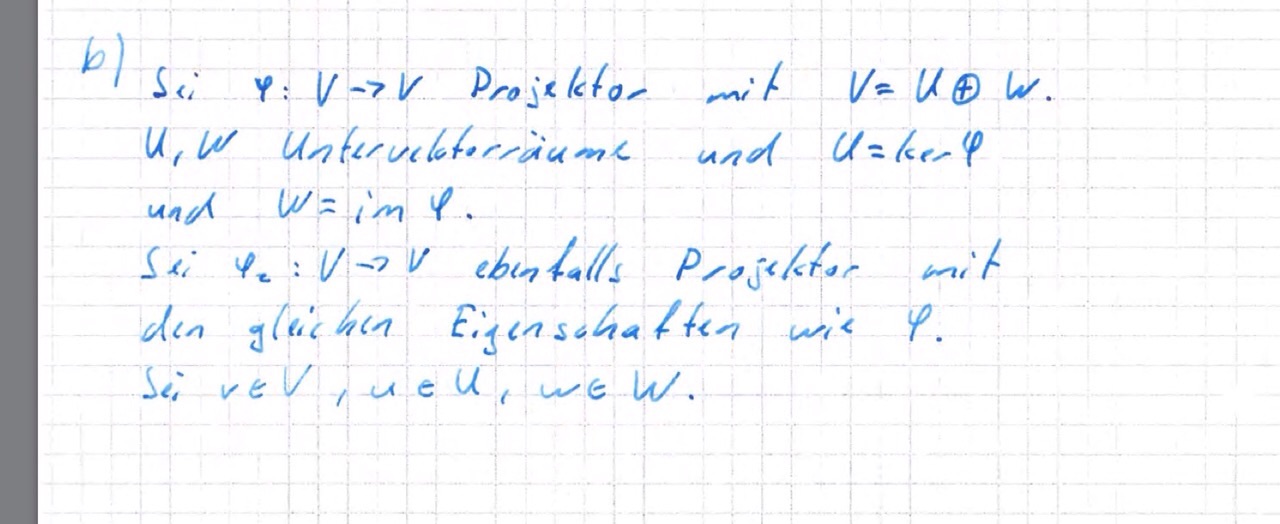 b) Sei φ: V -> V Projektor mit V = U ⊕ W.
U, W Untervektorräume und U = ker φ
und W = im φ.
Sei φ₂ : V -> V ebenfalls Projektor mit
den gleichen Eigenschaften wie φ.
Sei v ∈ V , u ∈ U, w ∈ W.